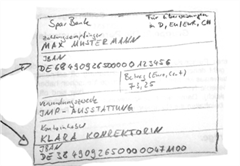 Spar Bank
Für Überweisungen
in D, EU/EWR, CH
Zahlungsempfänger
MAX MUSTERMANN
IBAN
DE 68 4909265 00000 123456
Betrag (Euro, Cent)
73,25
Verwendungszweck
IMP-AUSSTATTUNG
Kontoinhaber
KLARA KORREKTORIN
IBAN